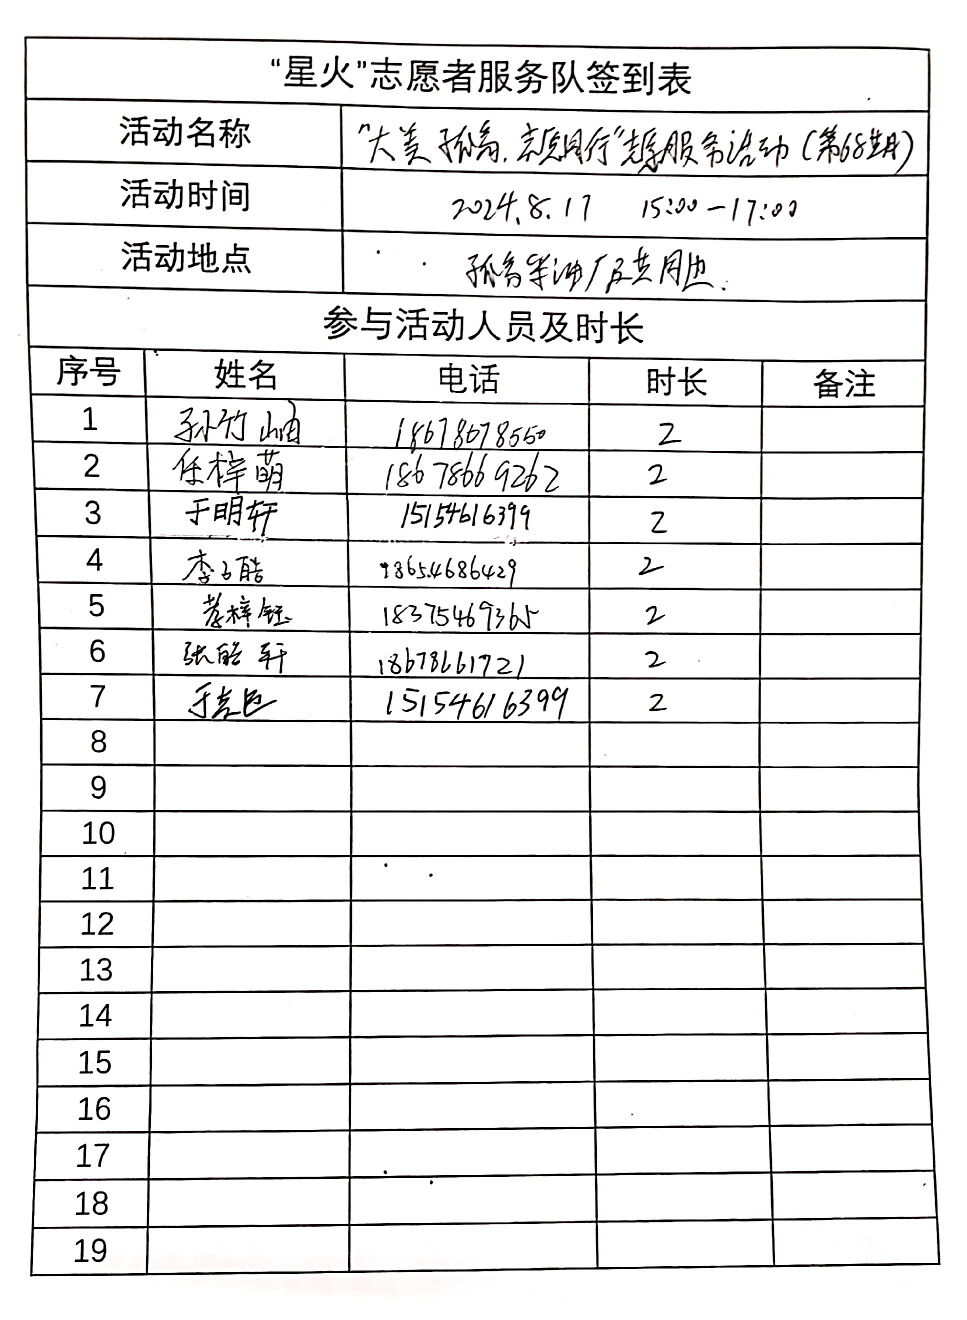 “星火”志愿者服务队签到表
活动名称 “大美孤岛，志愿同行”志愿服务活动（第68期）
活动时间 2024.8.17 15:00-17:00
活动地点 孤岛采油厂及共同
参与活动人员及时长
序号 姓名 电话 时长 备注
1 孙竹岫 18678678550 2
2 任梓萌 18678669262 2
3 于明轩 15154616399 2
4 李子皓 18654686429 2
5 梓钰 18375469365 2
6 张皓轩 18678661721 2
7 于 15154616399 2
8
9
10
11
12
13
14
15
16
17
18
19